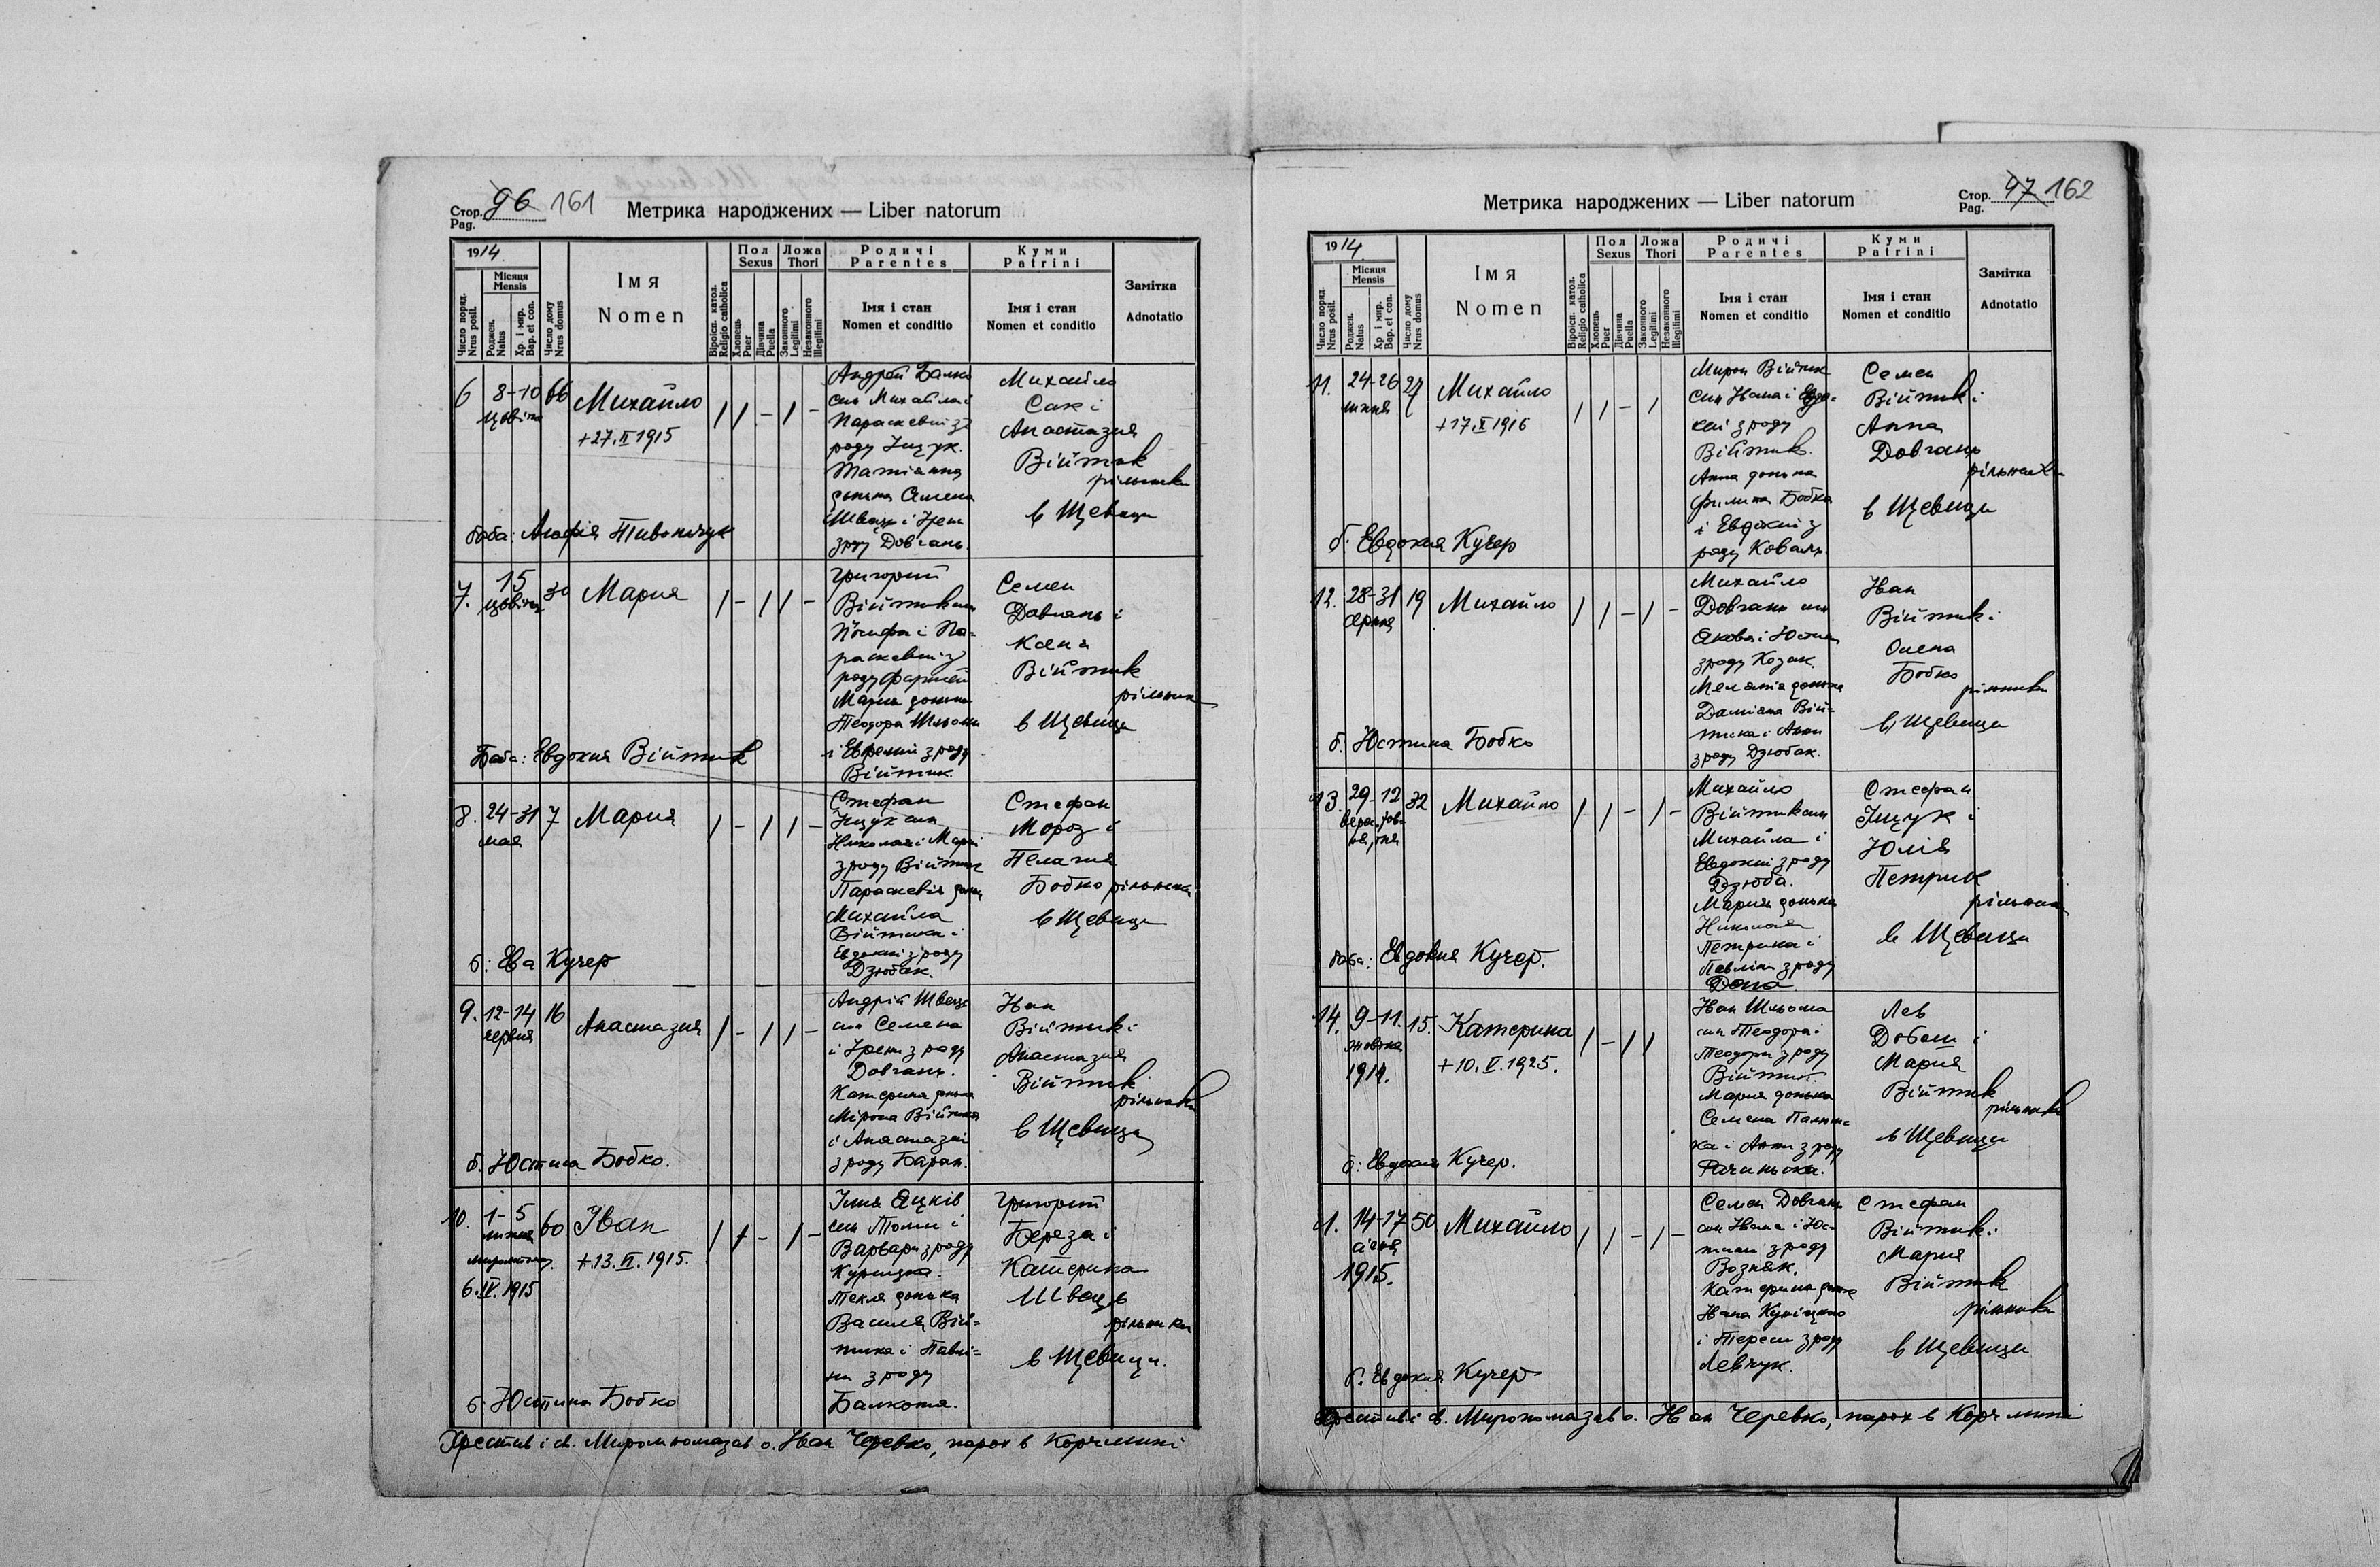 Стор. Pag. 96 161
Метрика народжених — Liber natorum
1914
Число поряд. Nrus posit.
Місяця Mensis
Роджен. Natus
Хр. і мир. Bap. et con.
Число дому Nrus domus
Імя
Nomen
Віроісп. катол. Religio catholica
Пол Sexus
Хлопець Puer
Дівчина Puella
Ложа Thori
Законного Legitimi
Незаконного Illegitimi
Родичі Parentes
Імя і стан
Nomen et conditio
Куми Patrini
Імя і стан
Nomen et conditio
Замітка
Adnotatio
6 8-10 цвітня 66 Михайло
+27.II 1915
Андрей
син Михайла і
Параскевії з
роду Іщук.
Татіанна
донька Семена
Швець і Ірени
з роду Довгань.
Михайло
Сак і
Анастазия
Війтик
рільники
в Щевици
баба: Агафія Тивончук
7. 15 цвітня 30 Мария
Григорий
Війтик син
Йосифа і Па-
раскевії з
роду Фарти
Мария донька
Теодора Шльома
і Евгенії з роду
Війтик.
Семен
Довгань і
Ксеня
Війтик
рільники
в Щевици
Баба: Евдокия Війтик
8. 24-31 мая 7 Мария
Стефан
Іщук син
Николая і Марії
з роду Війтик
Параскевія донька
Михайла
Війтика і
Евдокії з роду
Дзюбак.
Стефан
Мороз і
Пелагия
Бобко рільники
в Щевици
б: Ева Кучер
9. 12-14 червня 16 Анастазия
Андрій Швець
син Семена
і Ірени з роду
Довгань.
Катерина донька
Мірона Війтика
і Анастазиї
з роду Баран.
Іван
Війтик і
Анастазия
Війтик
рільники
в Щевици
б. Юстина Бобко.
10. 1-5 липня 60 Іван
миропомаз.
6.IV.1915
+13.VI.1915.
Ілия Яцків
син Томи і
Варвари з роду
Текля донька
Василя Вій-
тика і Павлі-
ни з роду
Балкота.
Григорий
Береза і
Катерина
Швець
рільники
в Щевици.
б. Юстина Бобко
Хрестив і св. Миропомазав о. Іван Черевко, парох в Корчмині
Метрика народжених — Liber natorum
Стор. Pag. 97 162
1914
Число поряд. Nrus posit.
Місяця Mensis
Роджен. Natus
Хр. і мир. Bap. et con.
Число дому Nrus domus
Імя
Nomen
Віроісп. катол. Religio catholica
Пол Sexus
Хлопець Puer
Дівчина Puella
Ложа Thori
Законного Legitimi
Незаконного Illegitimi
Родичі Parentes
Імя і стан
Nomen et conditio
Куми Patrini
Імя і стан
Nomen et conditio
Замітка
Adnotatio
11. 24-26 липня 27 Михайло
+17.X 1916
Мирон Війтик
син Івана і Евдо-
киї з роду
Війтик.
Анна донька
Филипа Бобка
і Евдокиї з
роду Коваль.
Семен
Війтик і
Анна
Довгань
рільники
в Щевици
б. Евдокия Кучер
12. 28-31 серпня 19 Михайло
Михайло
Довгань син
Якова і Юстини
з роду Козак.
Меланія донька
Даміяна Вій-
тика і Анни
з роду Дзюбак.
Іван
Війтик і
Олена
Бобко
рільники
в Щевици
б. Юстина Бобко
13. 29-12 32 Михайло
Михайло
Війтик син
Михайла і
Евдокиї з роду
Дзюба.
Мария донька
Николая
Петрика і
Павліни з роду
Стефан
Іщук і
Юлія
Петрик
рільники
в Щевици
баба: Евдокия Кучер.
14. 9-11. жовтня 1914. 15. Катерина
+10.V.1925.
Іван Шльома
син Теодора і
Теодори з роду
Війтик.
Мария донька
Семена
ка і Анни з роду
Лев
Добош і
Мария
Війтик
рільники
в Щевици
б: Евдокия Кучер.
1. 14-17 січня 1915. 50. Михайло
Семен Довгань
син Івана і Юс-
тини з роду
Возняк.
Катерина донька
Івана
і Тереси з роду
Левчук.
Стефан
Війтик і
Мария
Війтик
рільники
в Щевици
б. Евдокия Кучер
Хрестив і св. Миропомазав о. Іван Черевко, парох в Корчмині